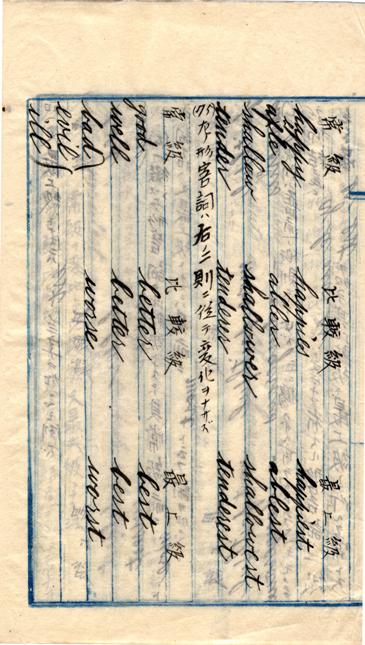 常級 比較級 最上級
happy happier happiest
able abler ablest
shallow shallower shallowest
tender tenderer tenderest
左ノ形容詞ハ右ノ二則ニ從テ変化ヲナサズ
常級 比較級 最上級
good better best
well better best
bad worse worst
evil
ill